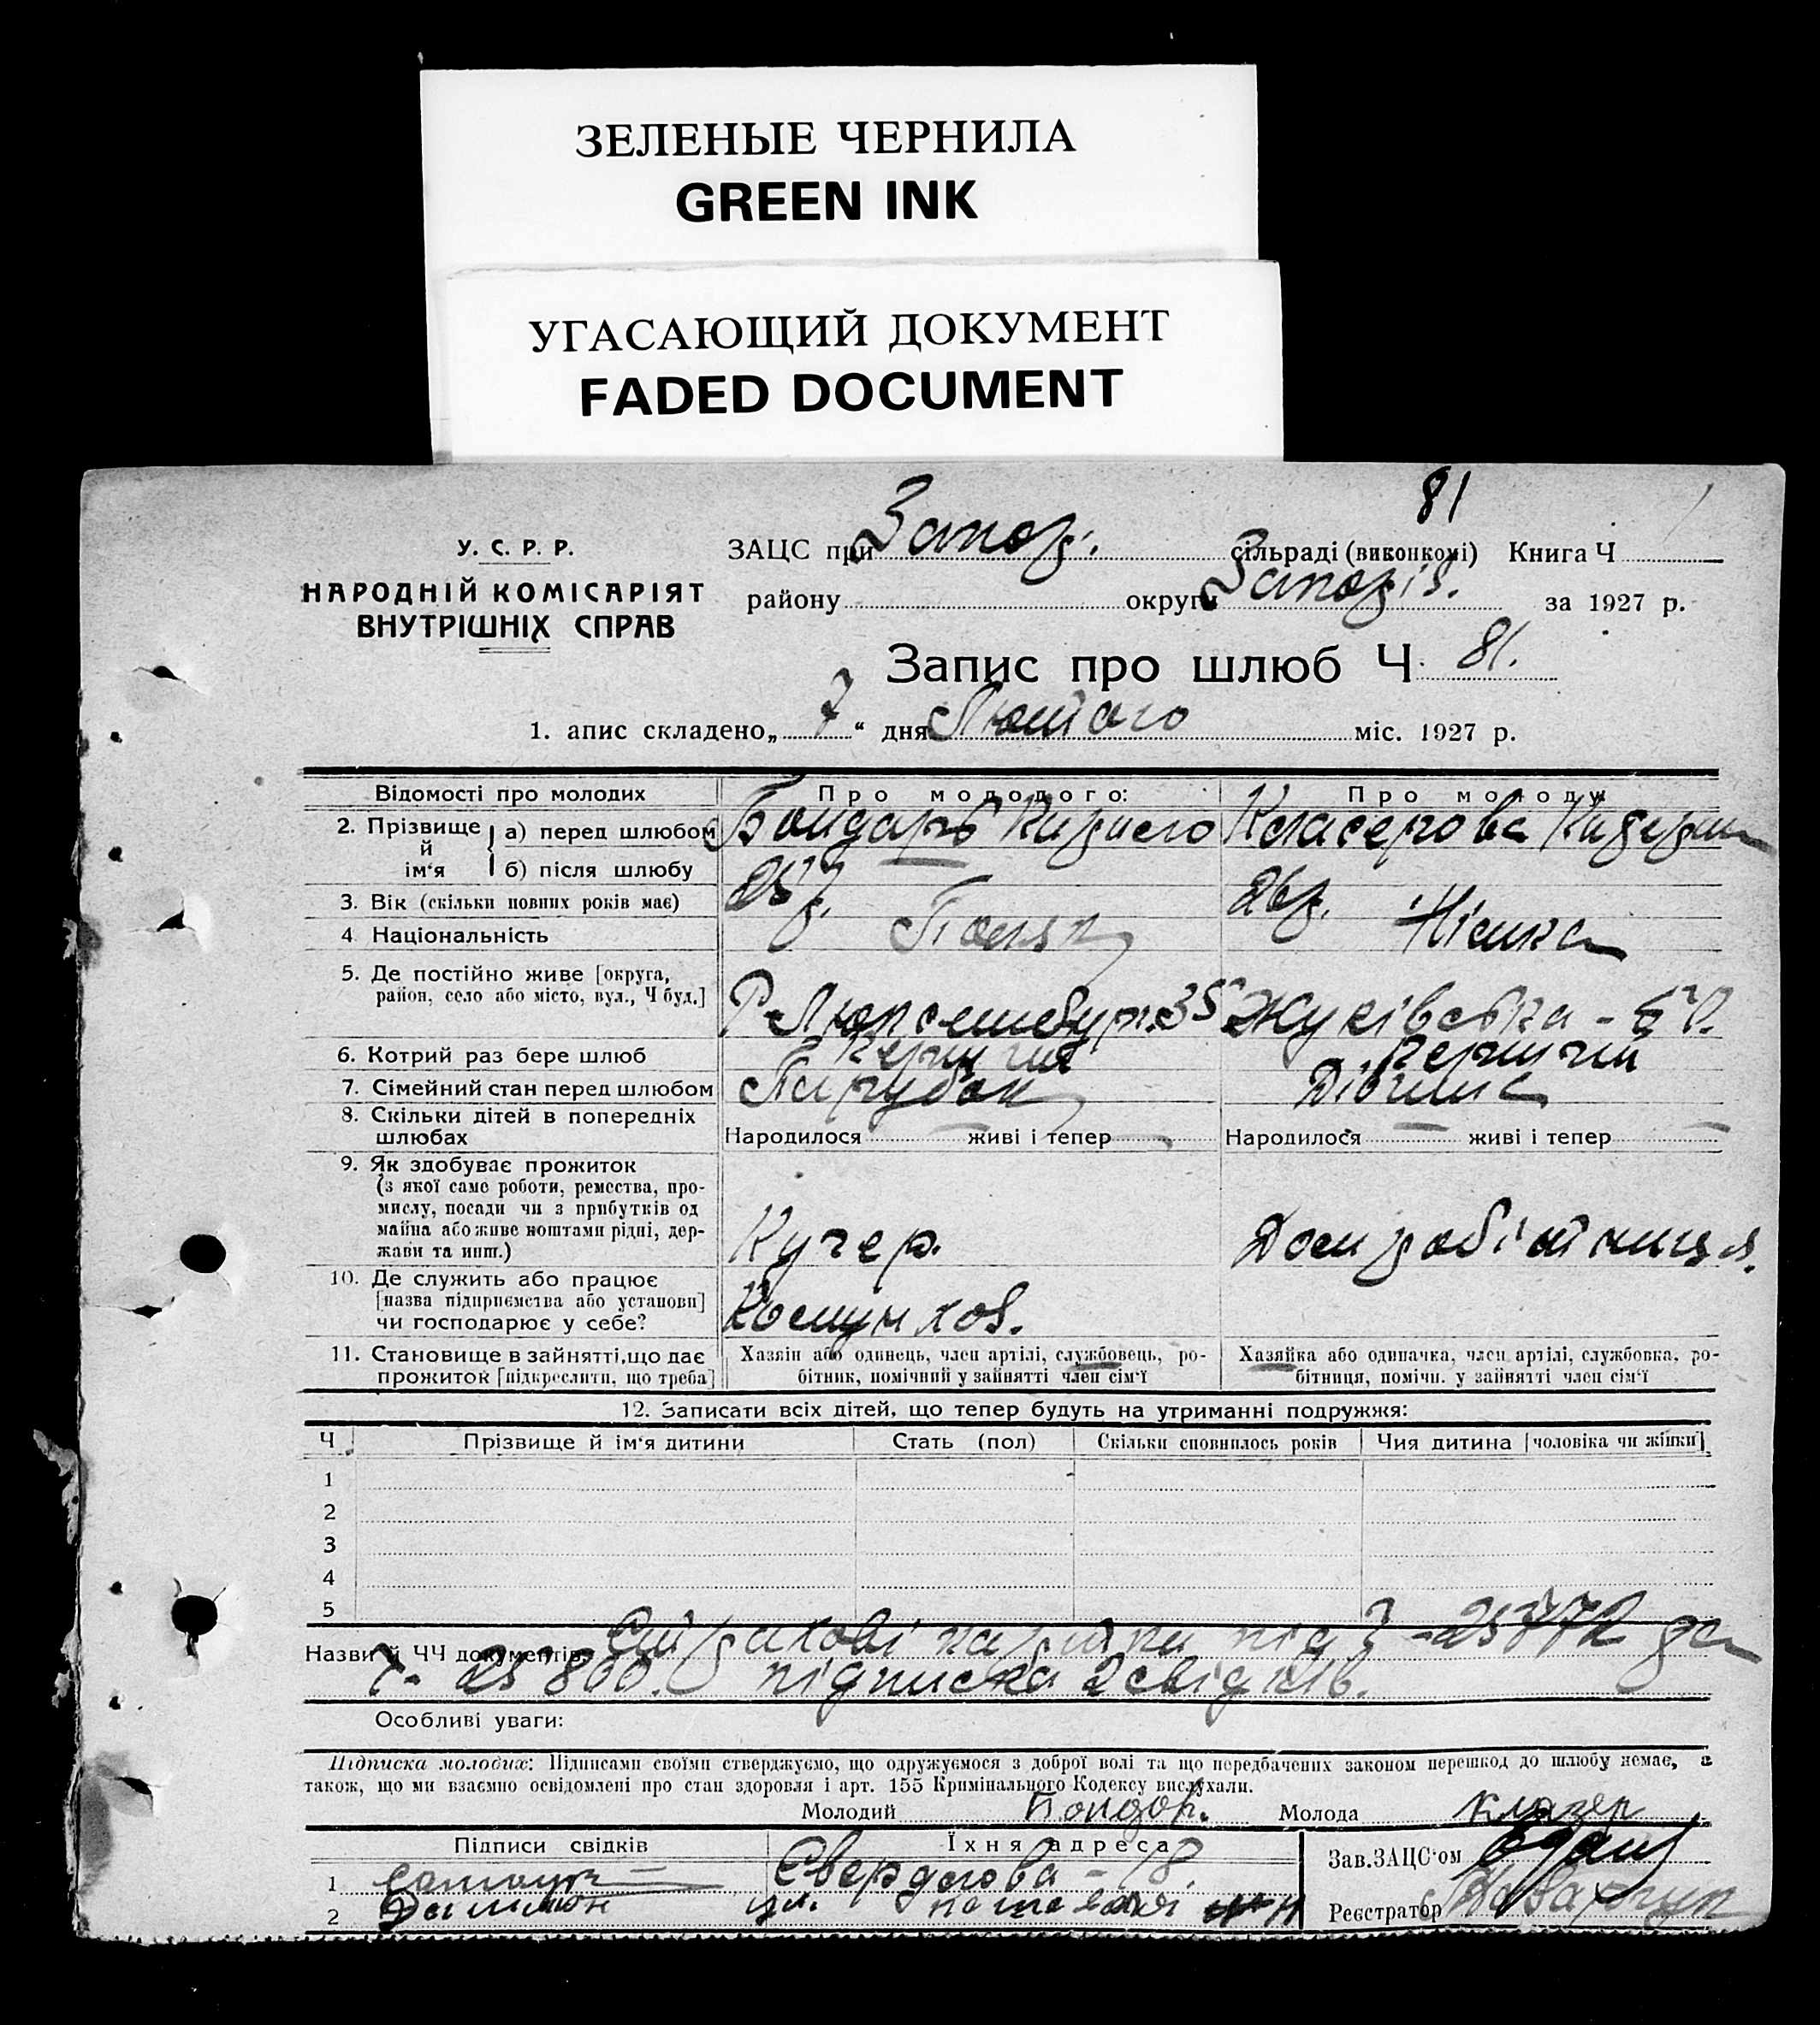 ЗЕЛЕНЫЕ ЧЕРНИЛА
GREEN INK
УГАСАЮЩИЙ ДОКУМЕНТ
FADED DOCUMENT
81
У. С. Р. Р.
НАРОДНІЙ КОМІСАРІЯТ
ВНУТРІШНІХ СПРАВ
ЗАЦС при Запор. сільраді (виконкомі) Книга Ч
району округи Запоріз. за 1927 р.
Запис про шлюб Ч. 81.
1. апис складено „7“ дня Лютого міс. 1927 р.
Відомості про молодих Про молодого: Про молоду
2. Прізвище й ім'я а) перед шлюбом Бондарь
б) після шлюбу
3. Вік (скільки повних років має) 25 р. 26 р.
4 Національність Поляк Німка
5. Де постійно живе [округа,
район, село або місто, вул., Ч буд.] Р-Люксембург. 35 Жуківська -
6. Котрий раз бере шлюб Перший Перший
7. Сімейний стан перед шлюбом Парубок Дівчина
8. Скільки дітей в попередніх
шлюбах Народилося живі і тепер Народилося живі і тепер
9. Як здобуває прожиток
(з якої саме роботи, ремества, про-
мислу, посади чи з прибутків од
майна або живе коштами рідні, дер-
жави та инш.) Кучер. Дом робітниця.
10. Де служить або працює
[назва підприємства або установи]
чи господарює у себе? Комунхоз.
11. Становище в зайнятті, що дає
прожиток [підкреслити, що треба]
Хазяїн або одинець, член артілі, службовець, ро-
бітник, помічний у зайнятті член сім'ї
Хазяйка або одиначка, член артілі, службовка, ро-
бітниця, помічн. у зайнятті член сім'ї
12. Записати всіх дітей, що тепер будуть на утриманні подружжя:
Ч Прізвище й ім'я дитини Стать (пол) Скільки сповнилось років Чия дитина [чоловіка чи жінки]
1
2
3
4
5
Назви й ЧЧ документів: під Ч-25772
Ч- 25800. підписка 2 свідків.
Особливі уваги:
Підписка молодих: Підписами своїми стверджуємо, що одружуємося з доброї волі та що передбачених законом перешкод до шлюбу немає, а
також, що ми взаємно освідомлені про стан здоровля і арт. 155 Кримінального Кодексу вислухали.
Молодий Бондар. Молода Клазер
Підписи свідків Їхня адреса Зав. ЗАЦС'ом
1 Свердлова - 18.
2 ул. Реєстратор